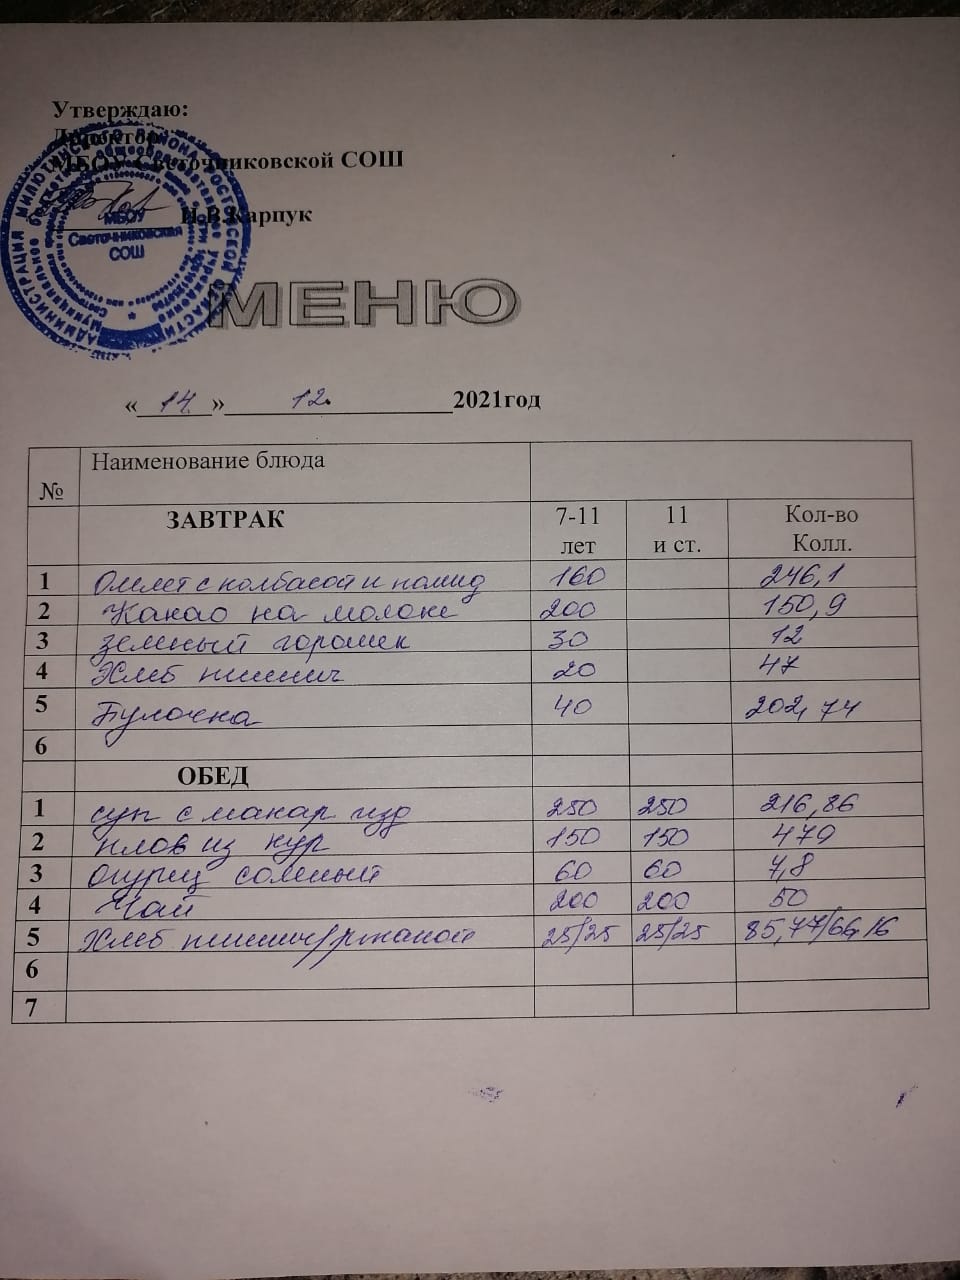 Утверждаю:
Директор
МБОУ Светочниковской СОШ
Н.В.Карпук
МБОУ
Светочниковская
СОШ
АДМИНИСТРАЦИЯ МИЛЮТИНСКОГО РАЙОНА РОСТОВСКОЙ ОБЛАСТИ
МЕНЮ
« 14 » 12. 2021год
№ Наименование блюда
ЗАВТРАК 7-11 лет 11 и ст. Кол-во Колл.
1 Омлет с колбасой и помид 160 246,1
2 Какао на молоке 200 150,9
3 зеленый горошек 30 12
4 Хлеб пшенич 20 47
5 Булочка 40 202,74
6
ОБЕД
1 суп с макар изд 250 250 216,86
2 плов из кур 150 150 479
3 огурец соленый 60 60 7,8
4 Чай 200 200 50
5 Хлеб пшенич/ржаной 25/25 25/25 85,77/66,16
6
7